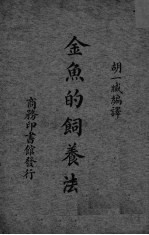 胡一㭜編譯
金魚的飼養法
商務印書館發行